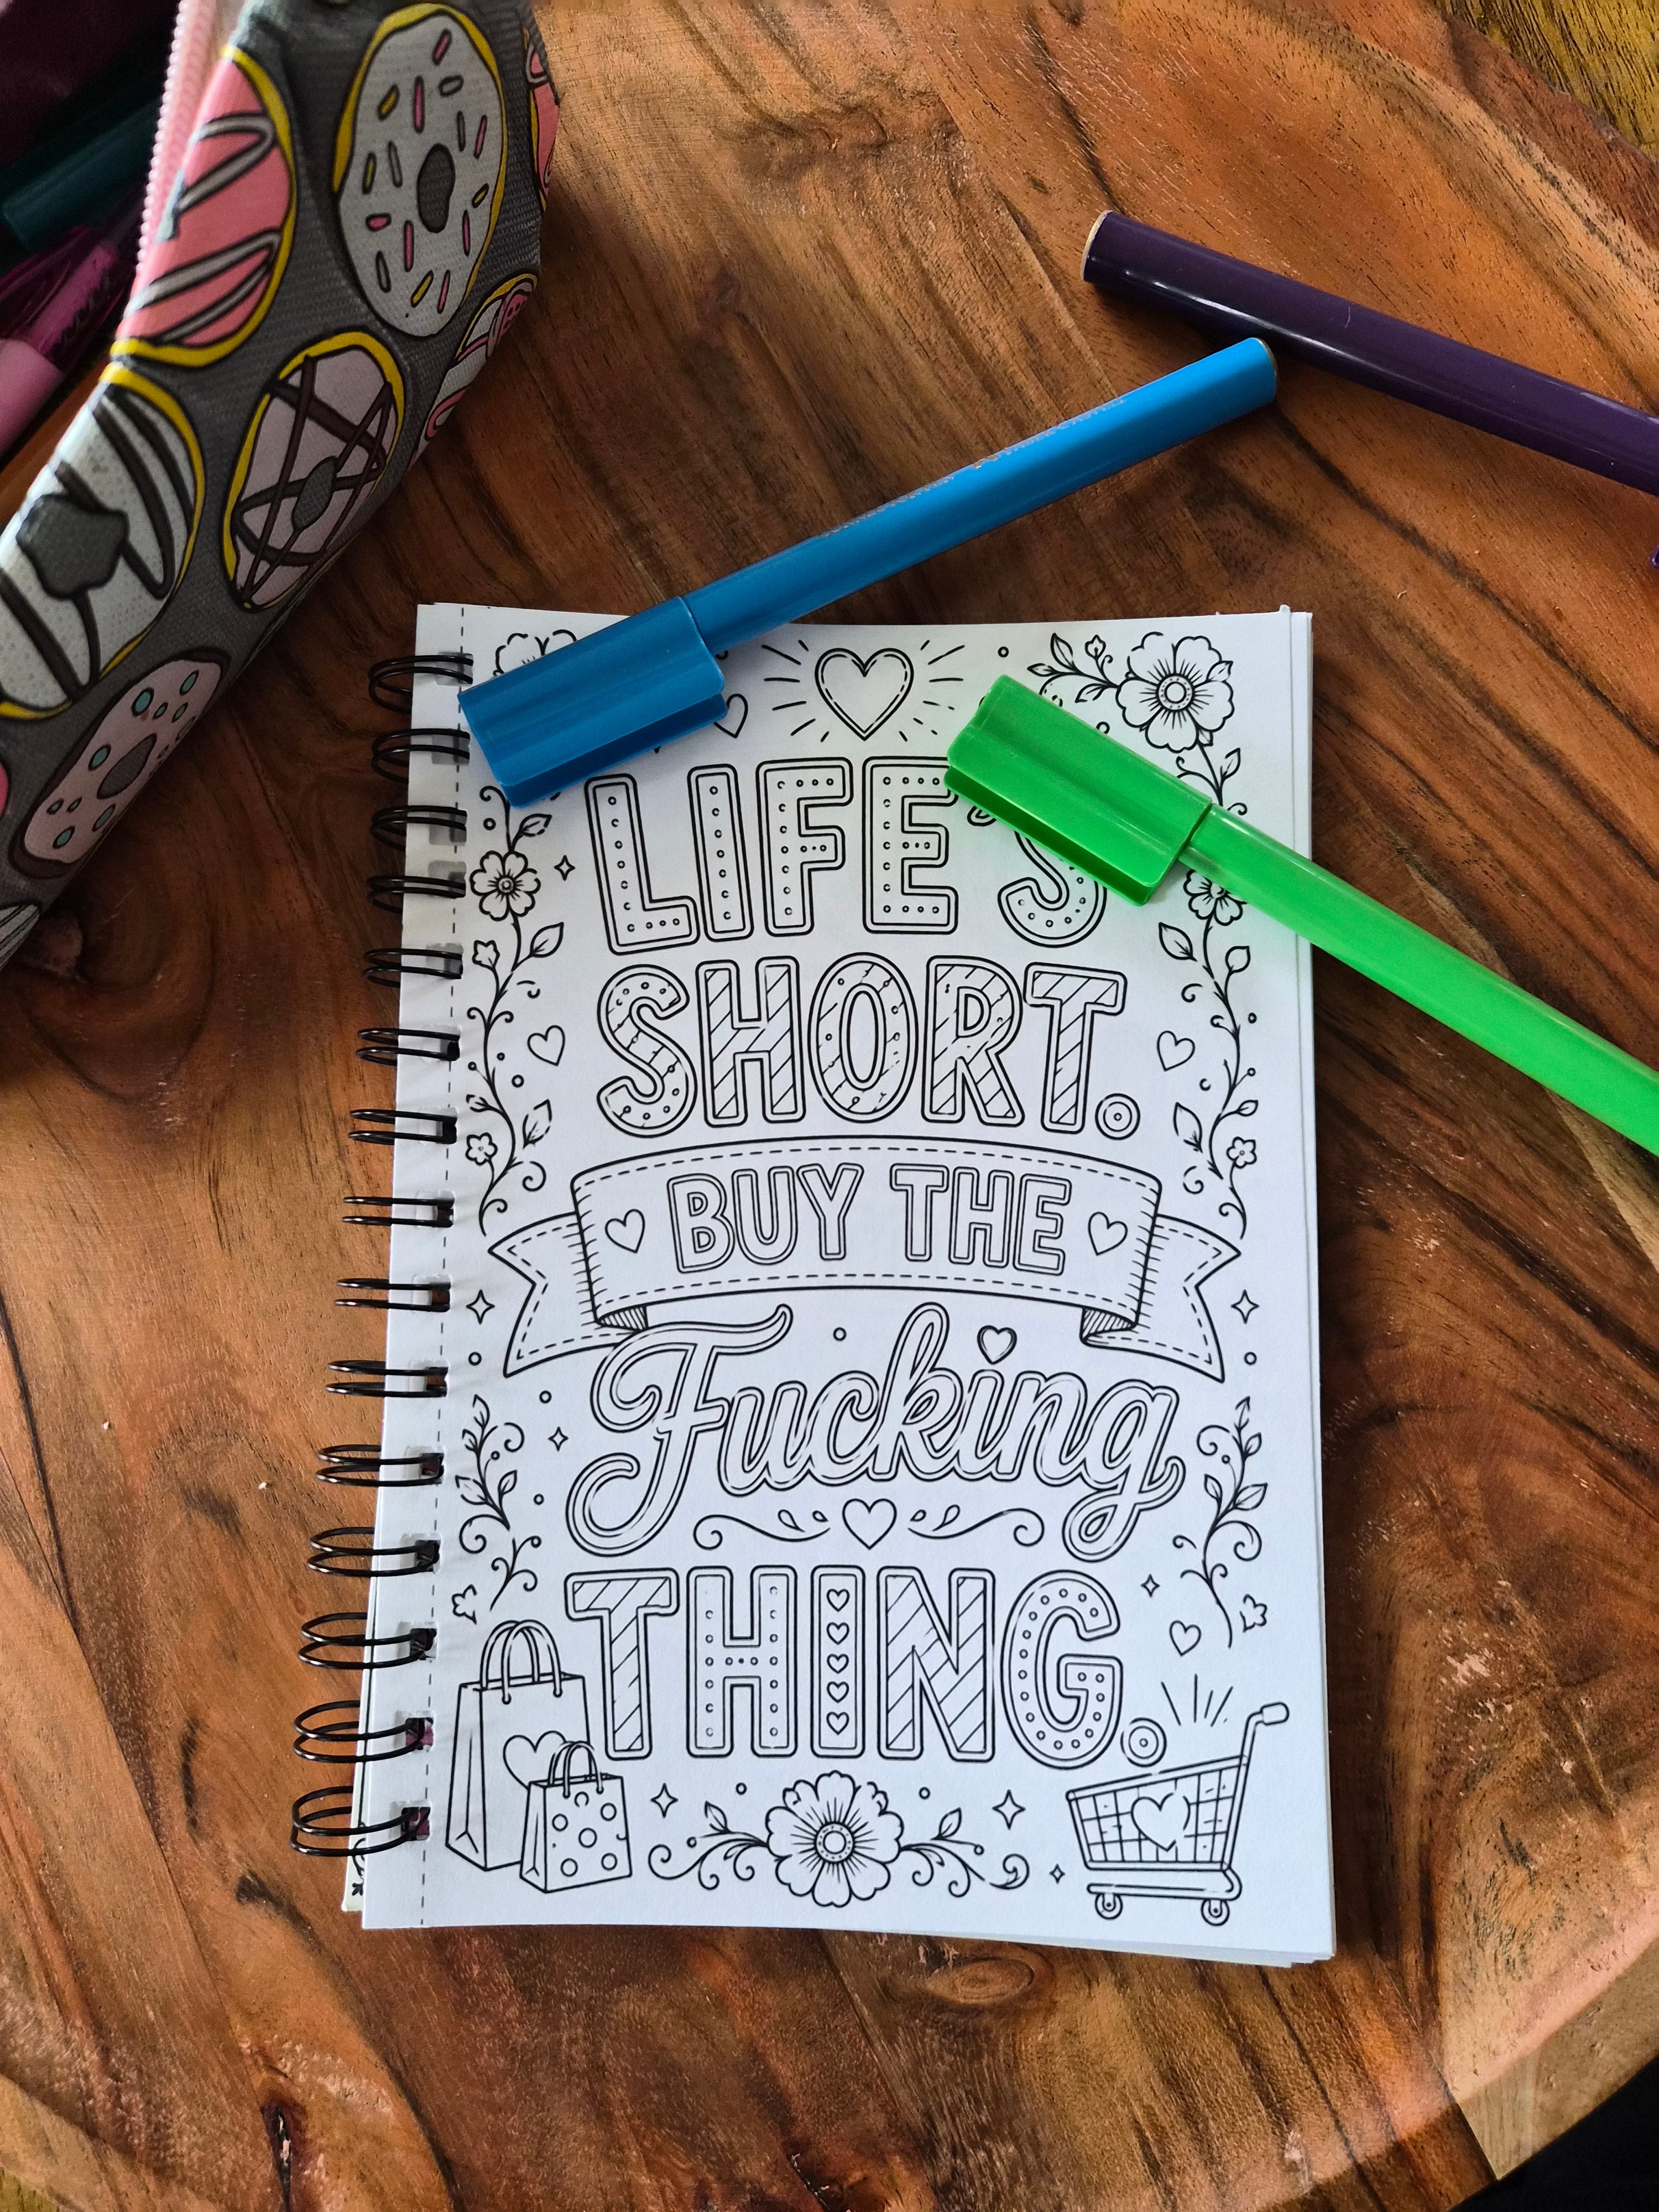 LIFE'S
SHORT.
BUY THE
Fucking
THING.